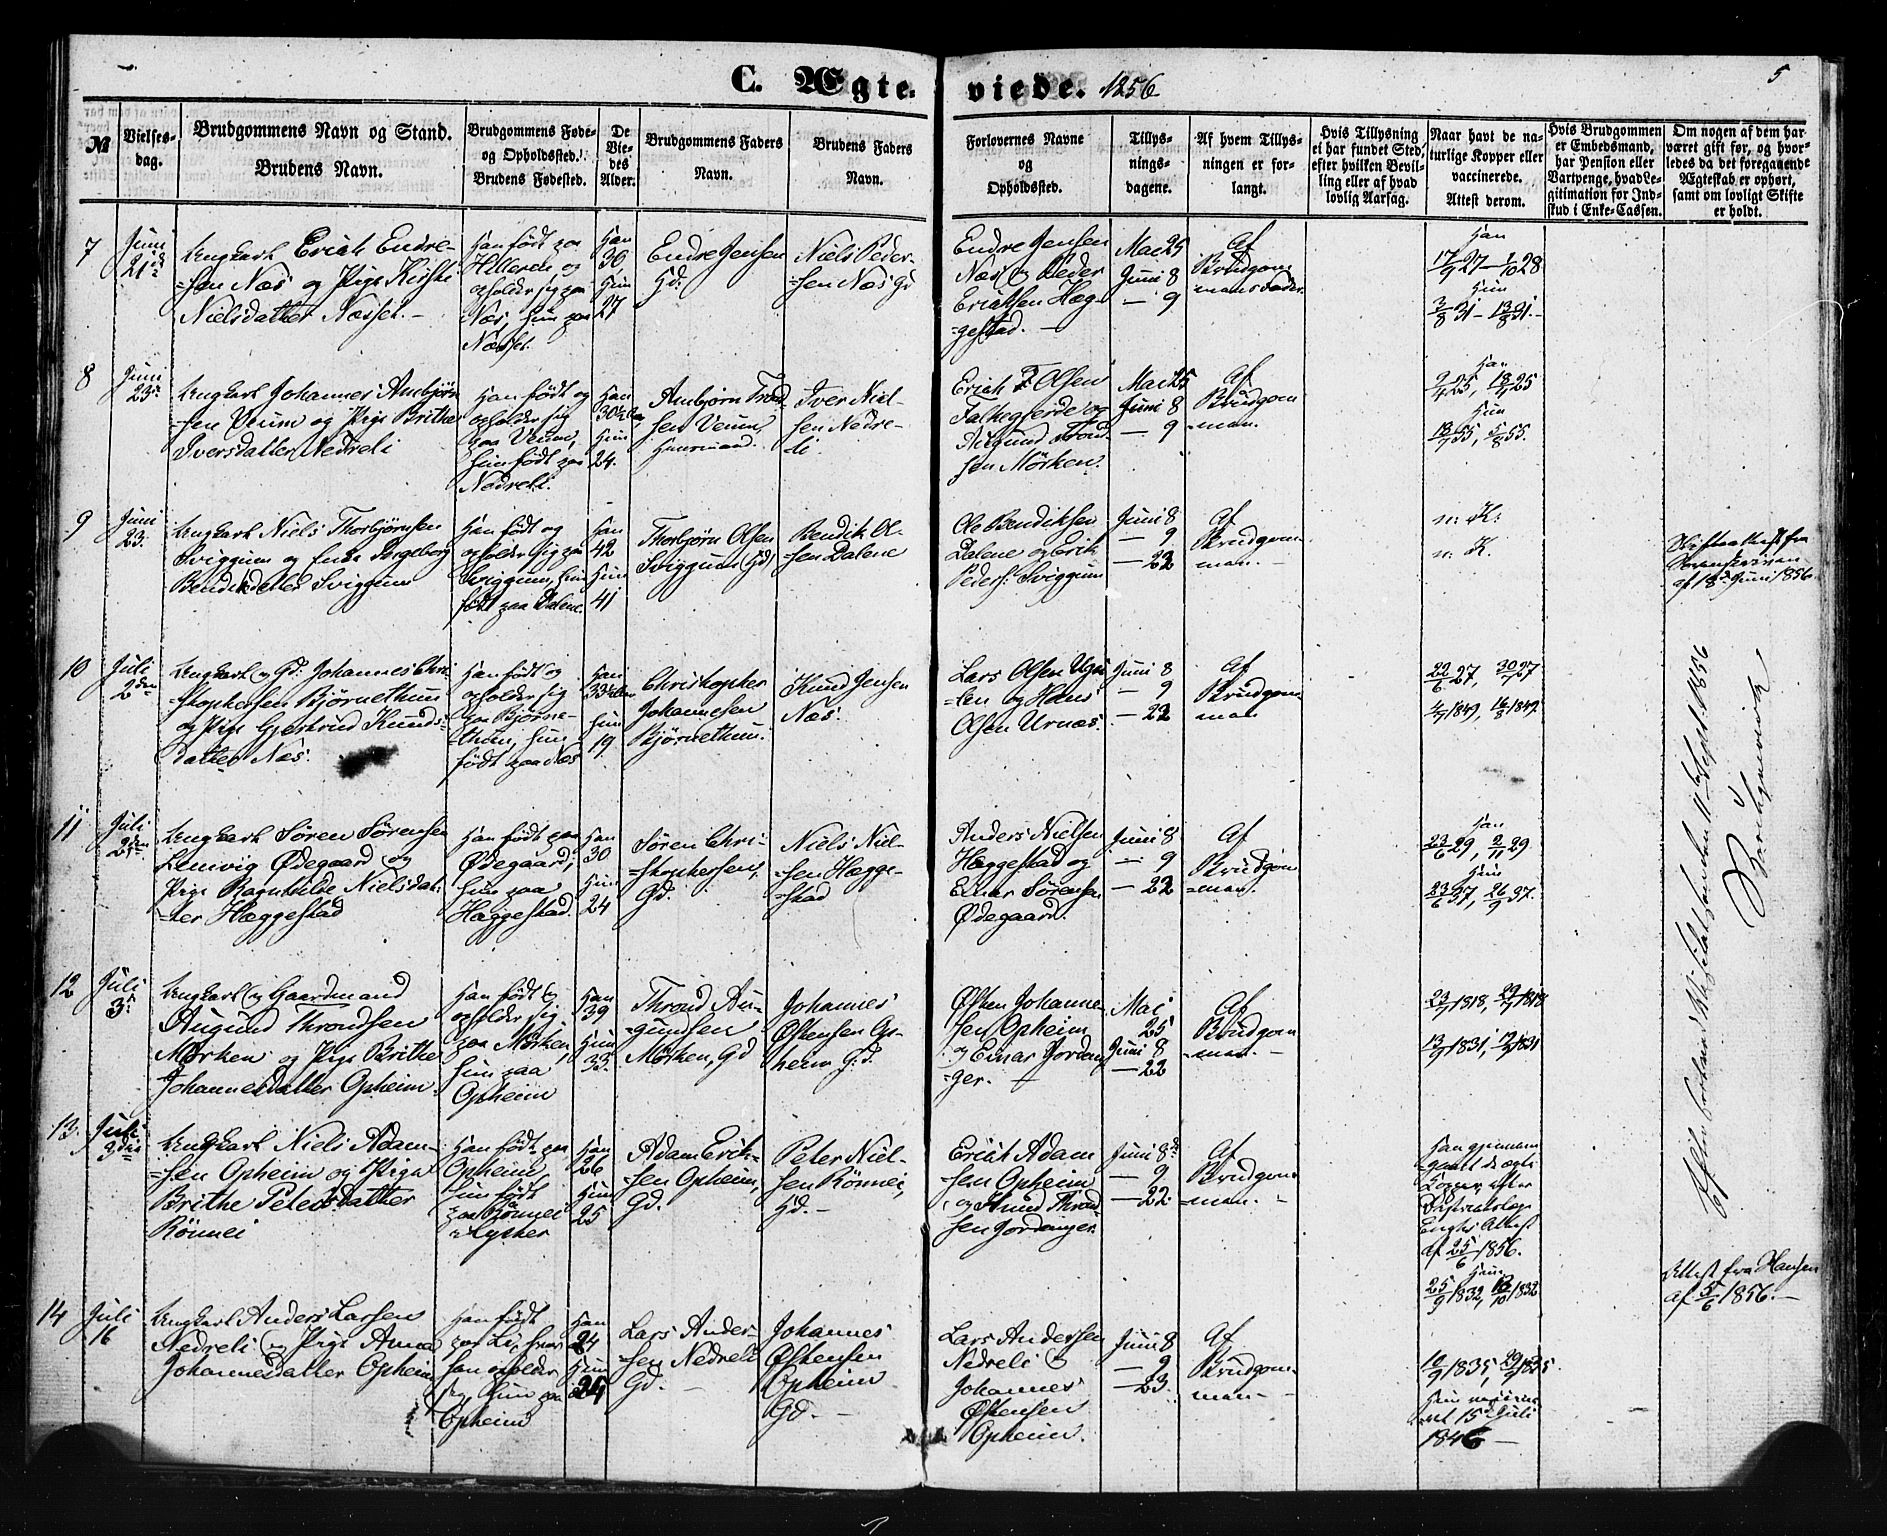 C. Ægte-
viede. 1856
5
№
Vielses-
dag.
Brudgommens Navn og Stand.
Brudens Navn.
Brudgommens Føde-
og Opholdssted.
Brudens Fødested.
De
Vie-
des
Alder.
Brudgommens Faders
Navn.
Brudens Faders
Navn.
Forlovernes Navne
og
Opholdssted.
Tillys-
nings-
dagene.
Af hvem Tillys-
ningen er for-
langt.
Hvis Tillysning
ei har fundet Sted,
efter hvilken Bevil-
ling eller af hvad
lovlig Aarsag.
Naar havt de na-
turlige Kopper eller
vaccinerede.
Attest derom.
Hvis Brudgommen
er Embedsmand,
har Pension eller
Vartpenge, hvad Le-
gitimation for Ind-
skud i Enke-Cassen.
Om nogen af dem har
været gift før, og hvor-
ledes da det foregaaende
Ægteskab er ophørt,
samt om lovligt Skifte
er holdt.
7
Juni
21de
Ungkarl Erich Endre-
-sen Næs og Pige Kirsti
Nielsdatter Næsset. -
Han født paa
Hilleren og
opholder sig paa
Næs, hun paa
Næsset.
Han
30,
Hun
27
Endre Jensen
Gd.
Niels Peder-
-sen Næs Gd
Endre Jensen
Næs og Peder
Erichsen Hæg-
-gestad. -
Mai 25
Juni 8
— 9
Af
Brudgom-
mans Fader.
Han
17/9 27 - 1/10 28
Hun
3/8 31 - 13/8 31. -
8
Juni
23de
Ungkarl Johannes Ambjørn-
-sen Veum og Pige Brithe
Iversdatter Nedreli
Han født og
opholder sig
paa Veum,
hun født paa
Nedreli.
Han
30½
Hun
24.
Ambjørn Trond-
sen Veum,
Huusmand.
Iver Niel-
sen Nedre-
li.
Erich Olsen
Falkegjerde og
Augund Trond-
sen Mörken.
Mai 25
Juni 8
— 9
Af
Brudgom-
-man.
Han
9/7 25, 18/7 25
Hun
18/7 55, 5/8 55.
9
Juni
23.
Ungkarl Niels Thorbjørnsen
Sviggum og Enke Ingeborg
Bendiksdatter Sviggum
Han født og
opholder sig paa
Sviggum, hun
født paa Dalene.
Han
42
Hun
41
Thorbjørn Olsen
Sviggum (Gd)
Bendik Ol-
-sen Dalene
Ole Bendiksen
Dalene og Erik
Peders: Sviggum
Juni 8
— 9
— 22
Af
Brudgom-
man.
n: K:
n: K.
Skifteattest fra
Sorenskriveren
af 18de Juni 1856.
10
Juli
2den
Ungkarl og Gd: Johannes Chri-
-stophersen Bjørnethun
og Pige Gjertrud Knuds-
datter Næs.
Han født og
opholder sig
paa Bjørne-
-thun, hun
født paa Næs
Han
Hun
19.
Christopher
Johannesen
Bjørnethun.
Knud Jensen
Næs.
Lars Olsen
-len og Hans
Olsen Urnæs.
Juni 8
— 9
— 22
Af
Brudgom-
man
22/6 27, 30/7 27
4/7 1849, 16/8 1849.
11
Juli
2den
Ungkarl Søren Sørensen
Lemvig Ødegaard og
Pige Ragnhilde Nielsdat-
-ter Hæggestad
Han født paa
Ødegaard,
hun paa
Hæggestad.
Han
30
Hun
24
Søren Chri-
-stophersen,
Gd.
Niels Niel-
-sen Hægge-
-stad
Anders Nielsen
Hæggestad og
Einar Sørensen
Ødegaard.
Juni 8
— 9
— 22
Af
Brudgom-
-man.
Han
23/6 29, 2/11 29
Hun
23/6 37, 26/9 37.
12
Juli
3de
Ungkarl og Gaardmand
Augund Throndsen
Mörken og Pige Brithe
Johannesdatter Opheim
Han født og
opholder sig
paa Mörken,
hun paa
Opheim
Han
39
Hun
33.
Thrond Au-
-gundsen
Mörken, Gd
Johannes
Østensen Op-
heim Gd.
Østen Johanne-
sen Opheim
og Einar Jordan-
-ger. —
Mai
25
Juni 8
— 22
Af
Brudgom-
-man. -
23/7 1818, 29/7 1818
13/9 1831, 19/9 1831
13.
Juli
3die
Ungkarl Niels Adam-
-sen Opheim og Pige
Brithe Petersdatter
Rönnei
Han født paa
Opheim,
hun født
paa Rönnei
i Lyster
Han
26
Hun
25
Adam Erik-
-sen Opheim,
Gd.
Peter Niel-
sen Rönnei,
Gd. -
Erich Adam-
-sen Opheim
og Knud Thrond-
sen Jordanger
Juni 8de
— 9
— 22.
Af
Brudgom-
man. -
Han gjennem-
gaaet de ægte
Kopper, efter
Distriktslæge
Attest
af 25/6 1856.
Hun
25/9 1832, 13/10 1832
Attest fra Hansen
af 5/6 1856. —
14
Juli
16
Ungkarl Anders Larsen
Nedreli og Pige Anna
Johannesdatter Opheim
Han født
paa Li, hvor
han opholder
sig, hun paa
Opheim
Han
24
Hun
24
Lars Ander-
-sen Nedreli
Gd. -
Johannes
Østensen
Opheim
Gd. -
Lars Andersen
Nedreli og
Johannes
Østensen
Opheim.
Juni 8
— 9
— 23.
Af
Brudgom-
man -
16/9 1835, 29/9 1835
Hun vaccine-
ret 15de Juli
1846 —